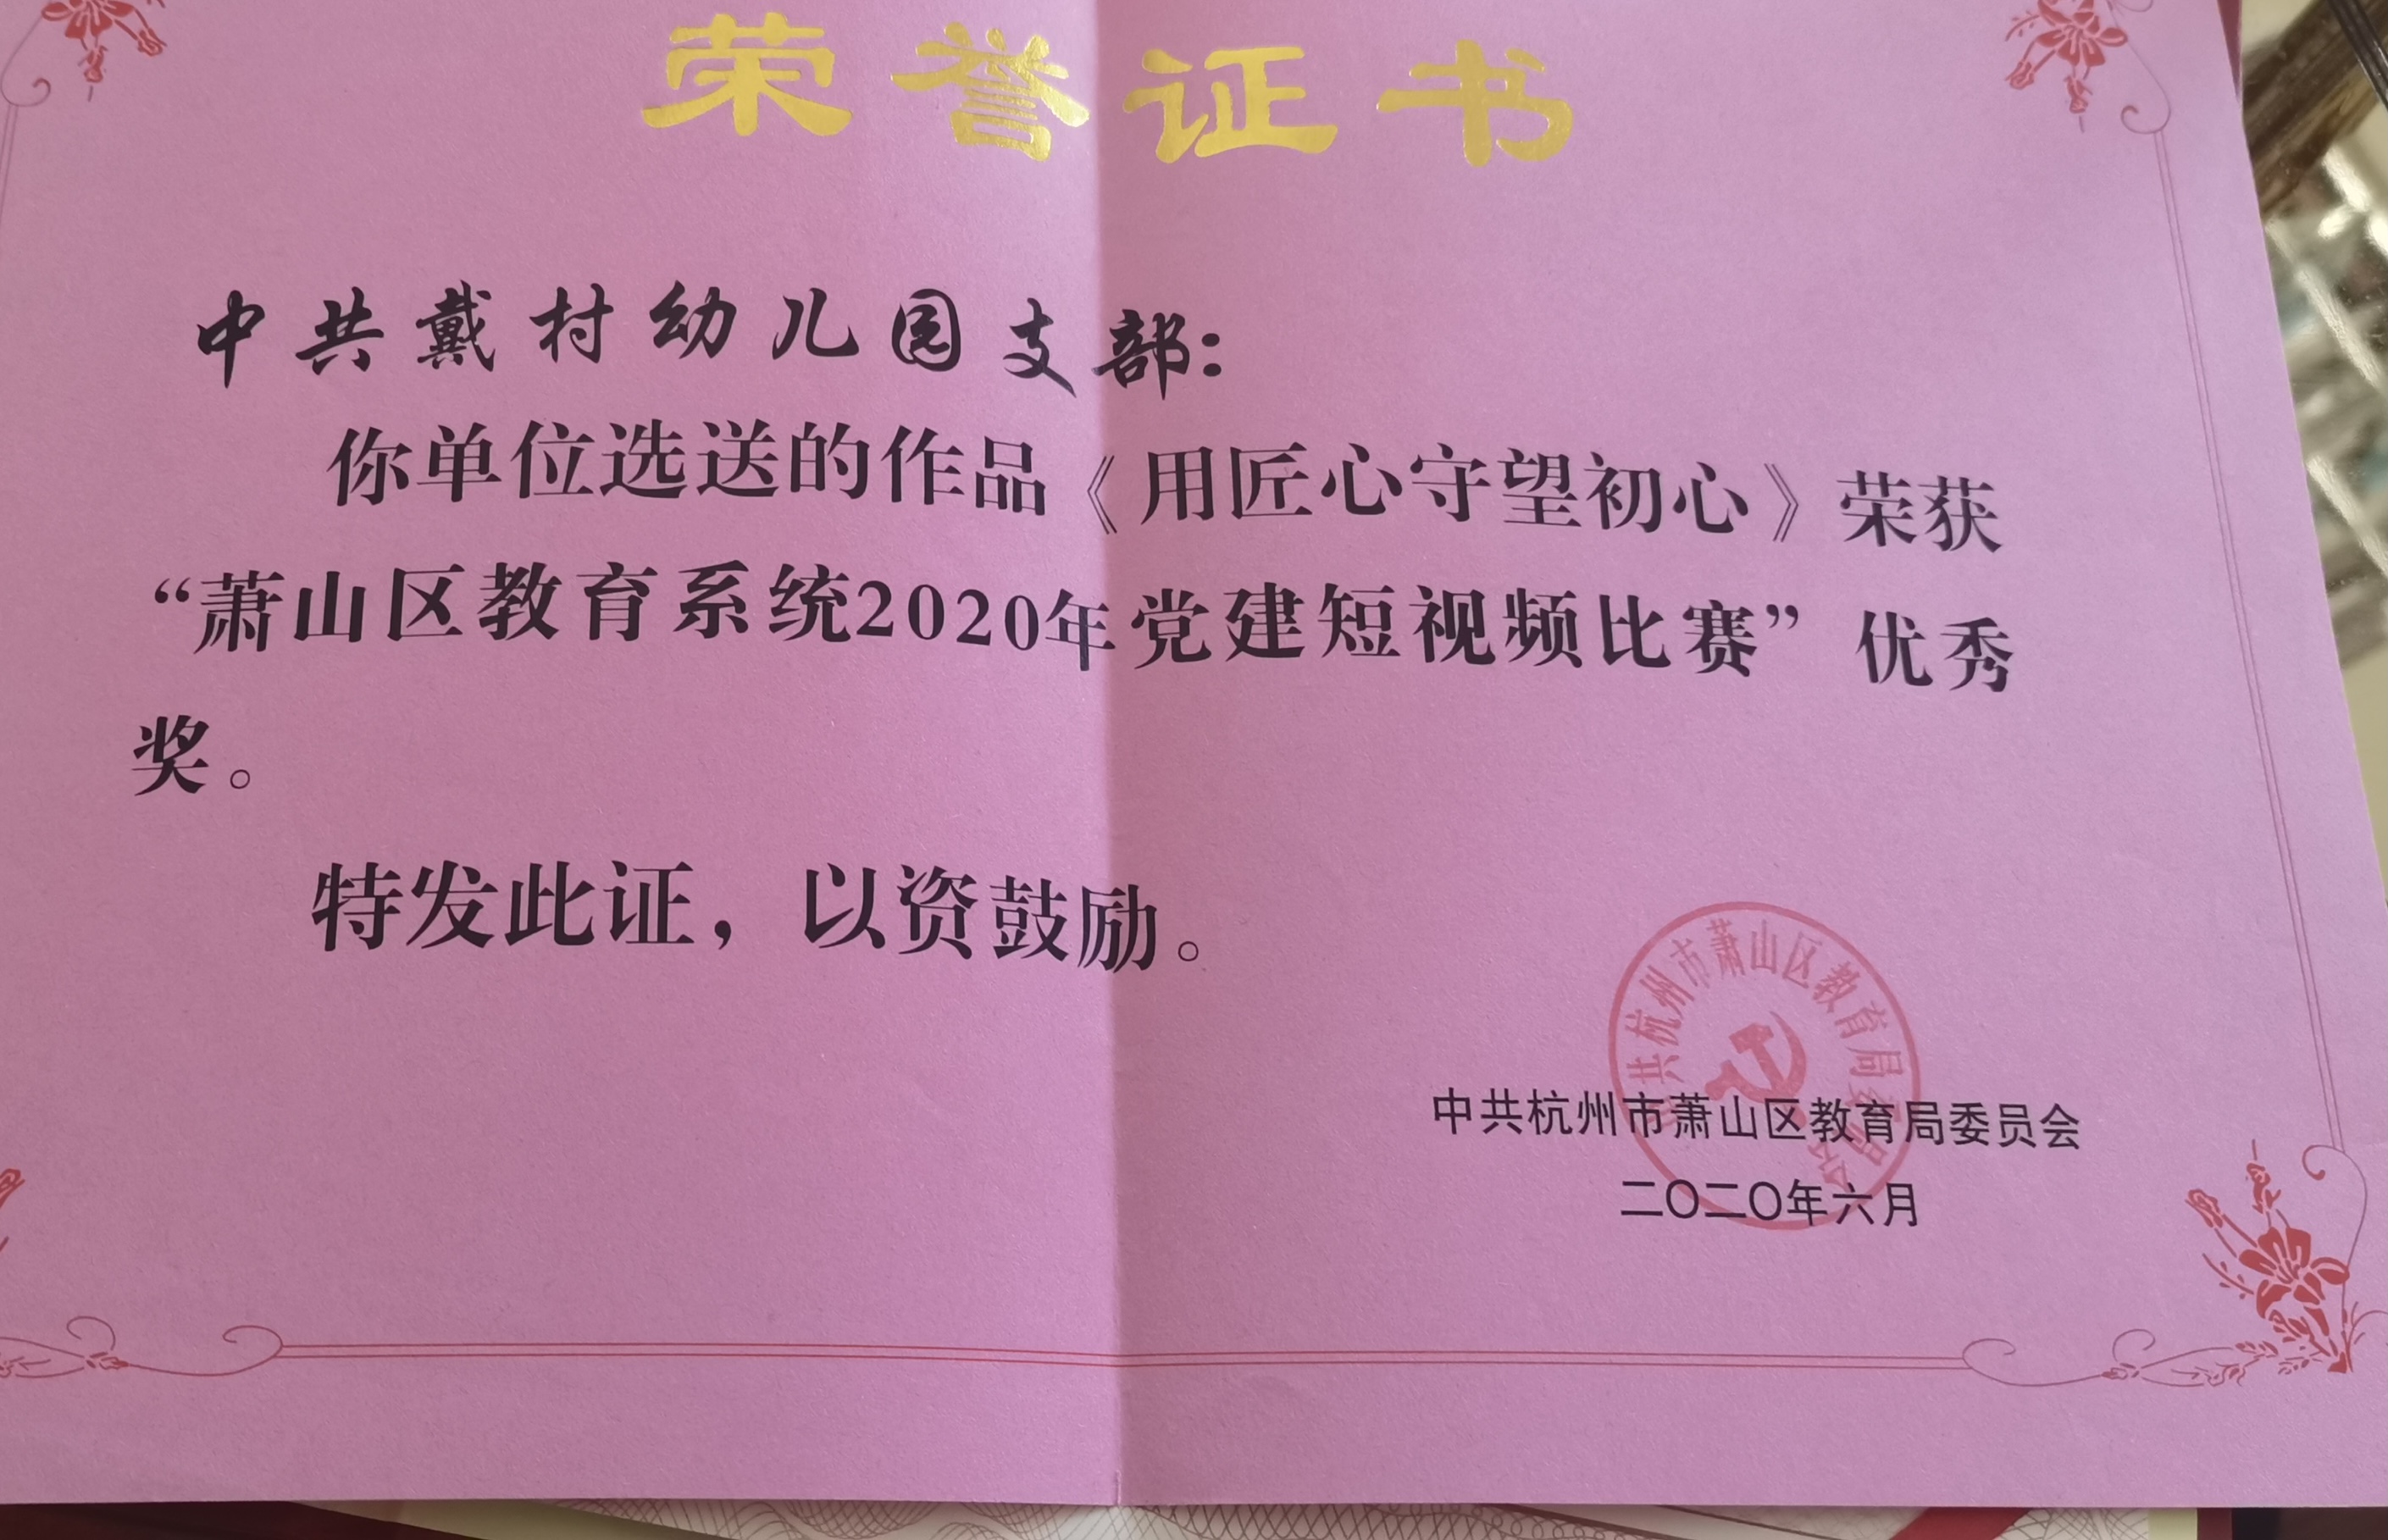 荣誉证书
中共戴村幼儿园支部：
你单位选送的作品《用匠心守望初心》荣获
“萧山区教育系统2020年党建短视频比赛”优秀
奖。
特发此证，以资鼓励。
中共杭州市萧山区教育局委员会
中共杭州市萧山区教育局委员会
二〇二〇年六月